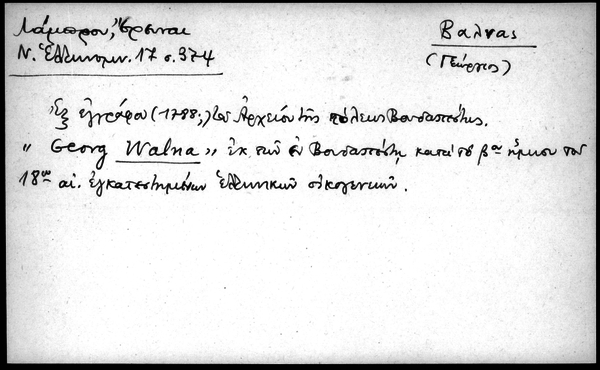 Λάμπρου, Ἔρευναι
Ν. Ἑλληνομν. 17 σ. 374
Βαλνας
(Γεώργιος)
Ἐξ ἐγγράφου (1788;) τοῦ Ἀρχείου τῆς πόλεως Βουδαπέστης.
" Georg Walna " ἐκ τῶν ἐν Βουδαπέστῃ κατὰ τὸ βον ἥμισυ τοῦ
18ου αἰ. ἐγκατεστημένων Ἑλληνικῶν οἰκογενειῶν.